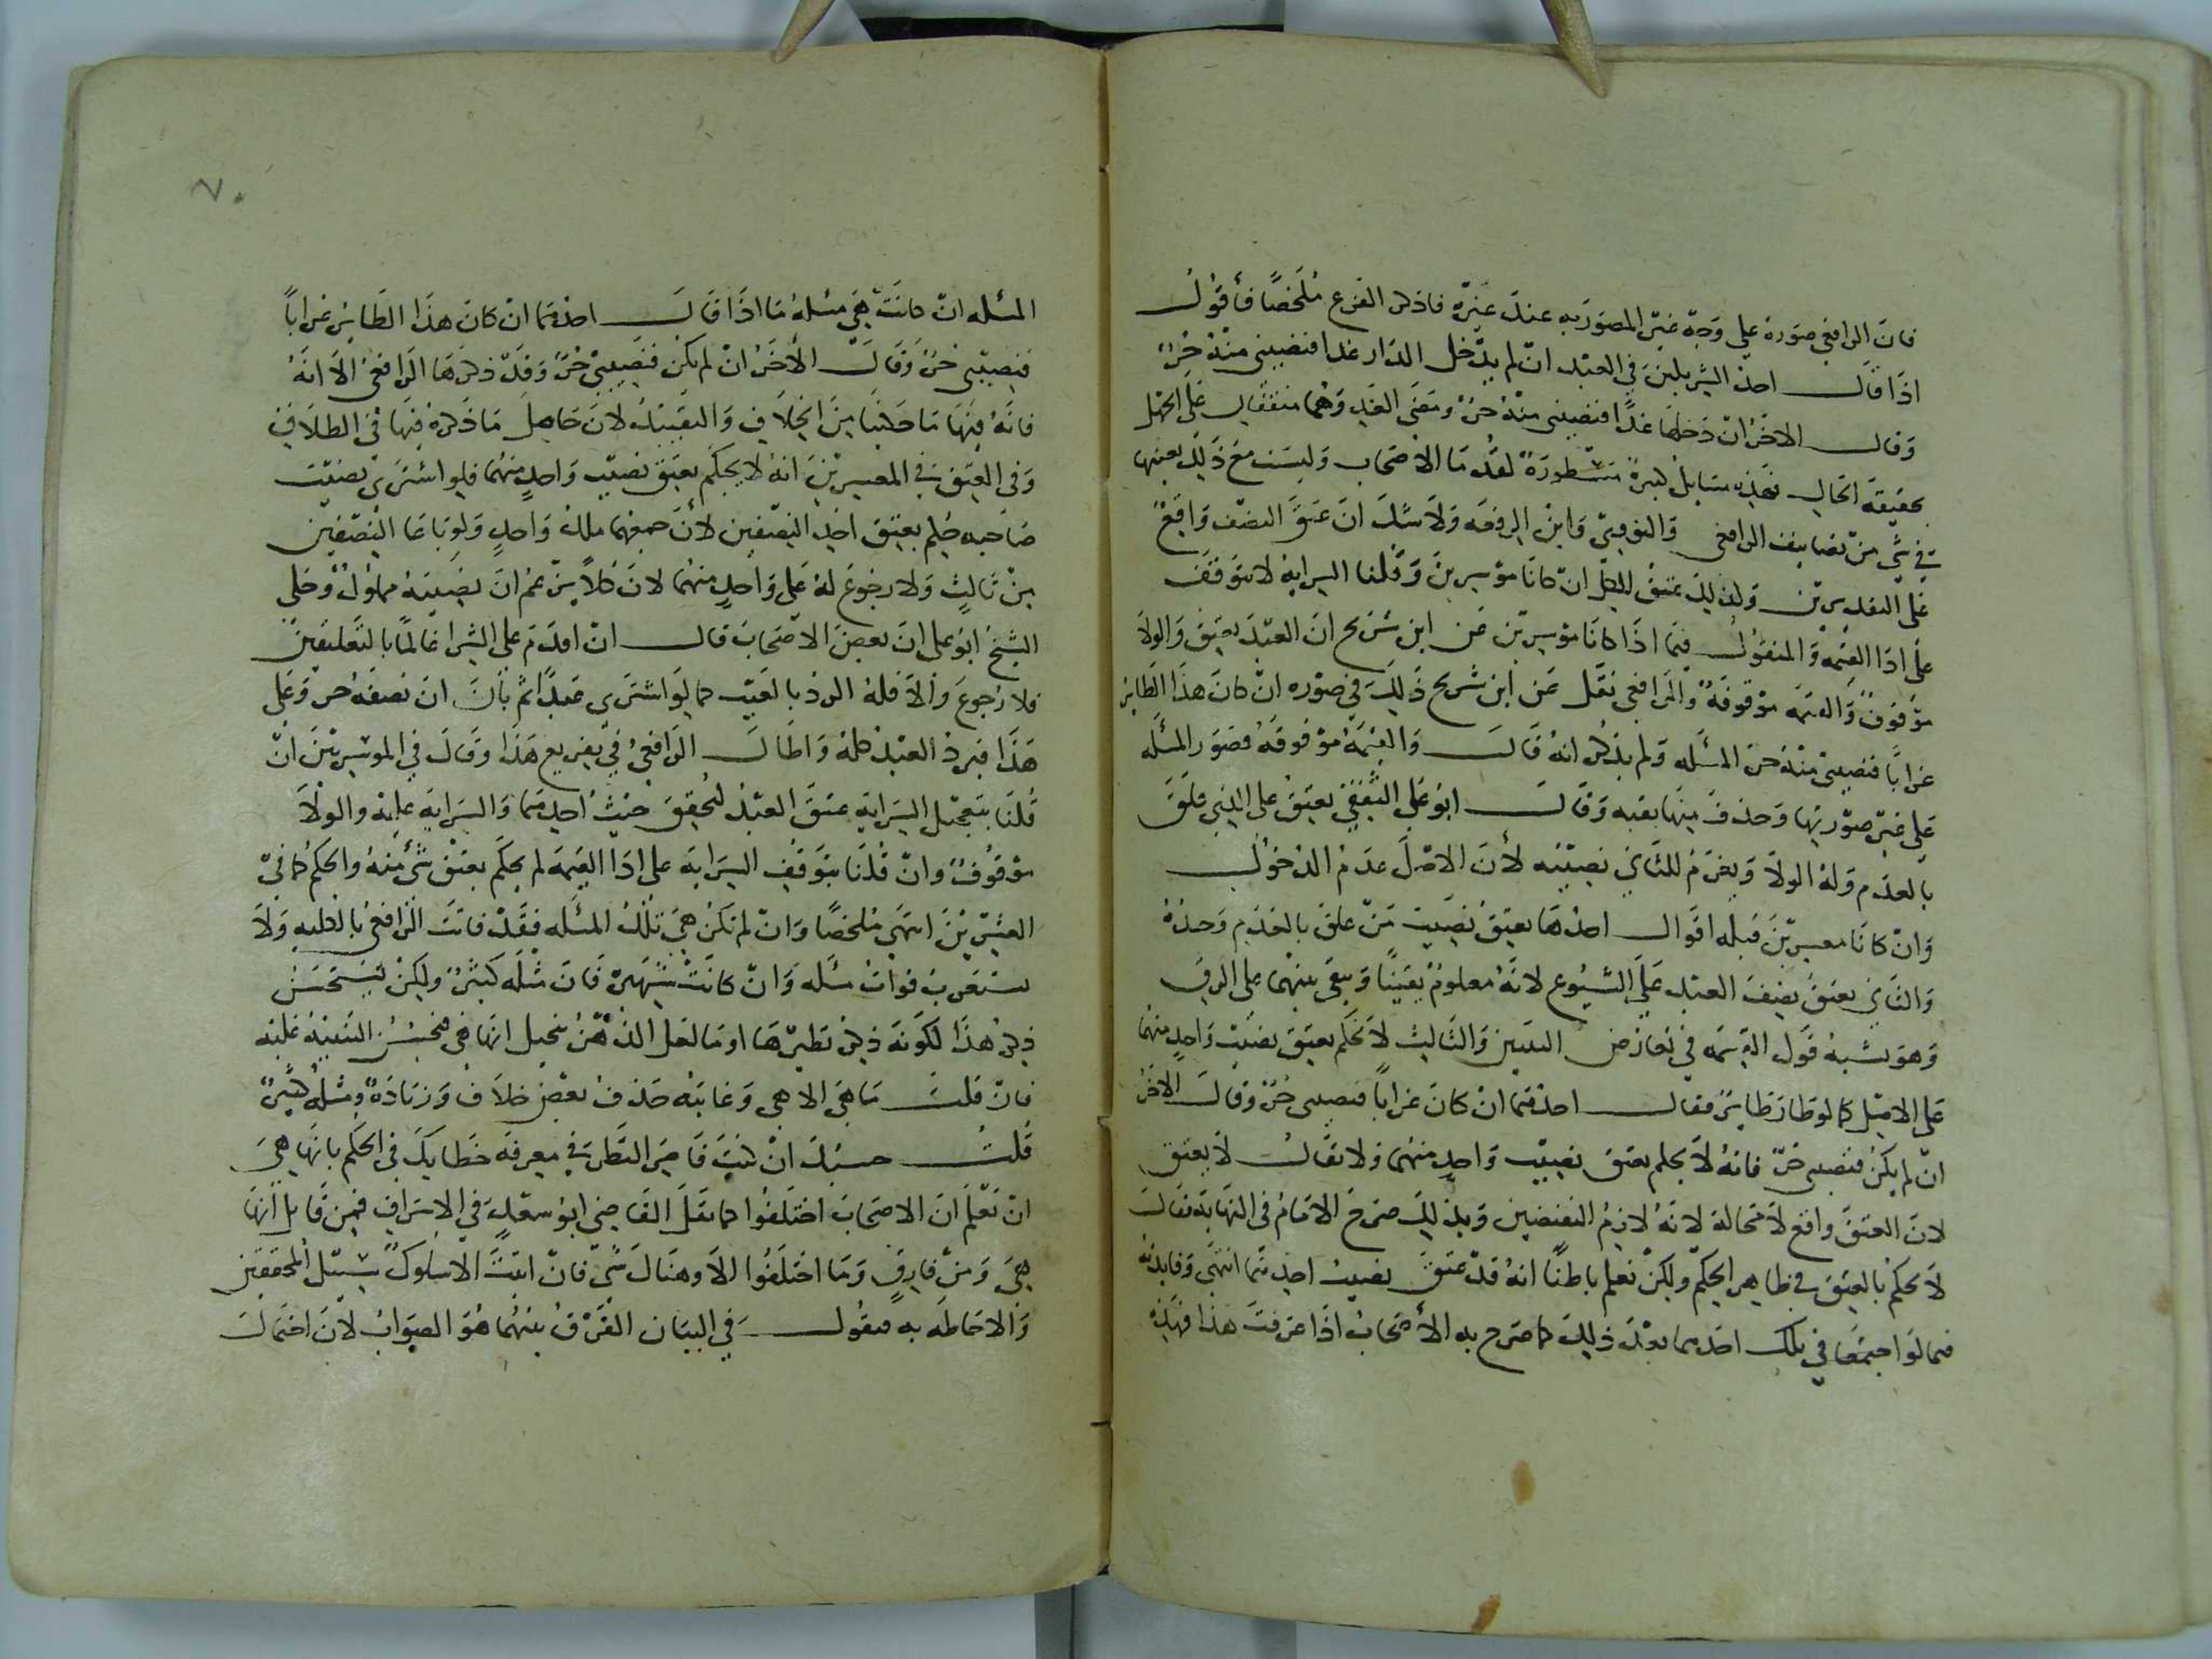 فان الرافعي صوره على وجه غير المصور به عند غيره فاذكر الفرع ملخصا فأقول
اذا قال احد الشريكين في العبد ان لم يدخل الدار غدا فنصيبي منه حر
وقال الاخر ان دخلها غدا فنصيبي منه حر ومضى الغد وهما متفقان على الجهل
بحقيقة الحال فهذه مسايل كبيرة مسطورة لقدما الاصحاب وليست مع ذلك بعينها
في شي من تصانيف الرافعي والنووي وابن الرفعه ولا شك ان عتق النصف واقع
على التقديرين ولذلك عتق الكل ان كانا موسرين وقلنا السراية لا تتوقف
على ادا القيمه والمنقول فيما اذا كانا موسرين عن ابن سريج ان العبد يعتق والولا
موقوف والقيمه موقوفة والرافعي نقل عن ابن سريج ذلك في صوره ان كان هذا الطاير
غرابا فنصيبي منه حر المسئله ولم يذكر انه قال والقيمة موقوفه فصور المسئله
على غير صورتها وحذف منها بقيه وقال ابو علي الثقفي يعتق على الذي علق
بالعدم وله الولا ويغرم للثاني نصيبه لأن الاصل عدم الدخول
وان كانا معسرين قبله اقوال احدها يعتق نصيب من علق بالعدم وحده
والثاني يعتق نصف العبد على الشيوع لانه معلوم يقينا ويبقى بينهما على الرق
وهو يشبه قول القسمه في تعارض البينتين والثالث لا نحكم بعتق نصيب واحد منهما
على الاصل كما لو طار طاير فقال احدهما ان كان غرابا فنصيبي حر وقال الاخر
ان لم يكن فنصيبي حر فانه لا يحكم بعتق نصيب واحد منهما ولا نقال لا يعتق
لان العتق واقع لا محالة لانه لازم النقيضين وبذلك صرح الامام في النهاية فقال
لا نحكم بالعتق في ظاهر الحكم ولكن نعلم باطنا انه قد عتق نصيب احدهما انتهى وفايدته
فيما لو اجتمعا في ملك احدهما بعد ذلك كما صرح به الأصحاب اذا عرفت هذا فهذه
٧٠
المسئله ان كانت هي مسئلة ما اذا قال احدهما ان كان هذا الطاير غرابا
فنصيبي حر وقال الأخر ان لم يكن فنصيبي حر وقد ذكرها الرافعي الا انه
فاته فيها ما حكينا من الخلاف والتقييد لان حاصل ما ذكره فيها في الطلاق
وفي العتق في المعسرين انه لا يحكم بعتق نصيب واحد منهما فلو اشترى نصيب
صاحبه حكم بعتق احد النصفين لأن جمعهما ملك واحد ولو باعا النصفين
من ثالث ولا رجوع له على واحد منهما لان كلا يزعم ان نصيبه مملوك وحكى
الشيخ ابو على ان بعض الاصحاب قال ان اقدم على الشرا عالما بالتعليقين
فلا رجوع والا فله الرد بالعيب كما لو اشترى عبدا ثم بان ان نصفه حر وعلى
هذا فيرد العبد كله واطال الرافعي في تفريع هذا وقال في الموسرين ان
قلنا بتعجيل السراية عتق العبد لتحقق حنث احدهما والسراية عليه والولا
موقوف وان قلنا بتوقف السراية على ادا القيمة لم يحكم بعتق شي منه والحكم كما في
المعسرين انتهى ملخصا وان لم تكن هي تلك المسئله فقد فاتت الرافعي بالكليه ولا
يستغرب فوات مسئله وان كانت شهيرة فان مثله كثير ولكن يستحسن
ذكر هذا لكونه ذكر نظيرها او ما لعل الذهن يتخيل انها هي فيحسن التنبيه عليه
فان قلت ما هي الا هي وغايته حذف بعض خلاف وزيادة ومثله كثير
قلت حسبك ان كنت قاصر النظر في معرفة خطايك في الحكم بانها هي
ان تعلم ان الاصحاب اختلفوا كما نقل القاضي ابو سعد في الاشراف فمن قايل انها
هي ومن فارق وما اختلفوا الا وهناك شي فان ابيت الا سلوك سبيل المحققين
والاحاطه به فنقول في البيان الفرق بينهما هو الصواب لان احتمال